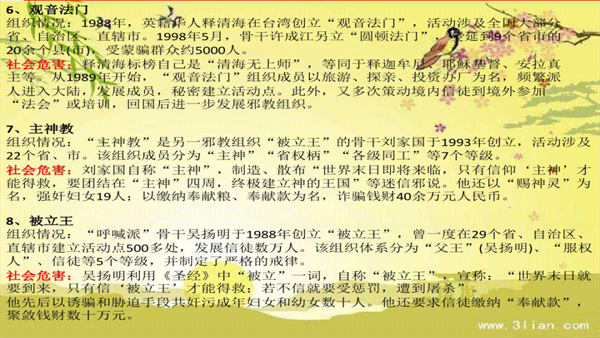 6、观音法门
组织情况：1988年，英籍华人释清海在台湾创立“观音法门”，活动涉及全国大部分
省、自治区、直辖市。1998年5月，骨干许成江另立“圆顿法门”，曾延到9个省市的
20余个县(市)，受蒙骗群众约5000人。
社会危害：释清海标榜自己是“清海无上师”，等同于释迦牟尼、耶稣基督、安拉真
主等。从1989年开始，“观音法门”组织成员以旅游、探亲、投资办厂为名，频繁派
人进入大陆，发展成员，秘密建立活动点。此外，又多次策动境内信徒到境外参加
“法会”或培训，回国后进一步发展邪教组织。
7、主神教
组织情况：“主神教”是另一邪教组织“被立王”的骨干刘家国于1993年创立，活动涉及
22个省、市。该组织成员分为“主神”“省权柄”“各级同工”等7个等级。
社会危害：刘家国自称“主神”，制造、散布“世界末日即将来临，只有信仰‘主神’才
能得救，要团结在“主神”四周，终极建立神的王国”等迷信邪说。他还以“赐神灵”为
名，强奸妇女19人；以缴纳奉献粮、奉献款为名，诈骗钱财40余万元人民币。
8、被立王
组织情况：“呼喊派”骨干吴扬明于1988年创立“被立王”，曾一度在29个省、自治区、
直辖市建立活动点500多处，发展信徒数万人。该组织体系分为“父王”(吴扬明)、“服权
人”、信徒等5个等级，并制定了严格的戒律。
社会危害：吴扬明利用《圣经》中“被立”一词，自称“被立王”，宣称：“世界末日就
要到来，只有信‘被立王’才能得救；若不信就要受惩罚，遭到屠杀”
他先后以诱骗和胁迫手段共奸污成年妇女和幼女数十人。他还要求信徒缴纳“奉献款”，
聚敛钱财数十万元。
www.3lian.com